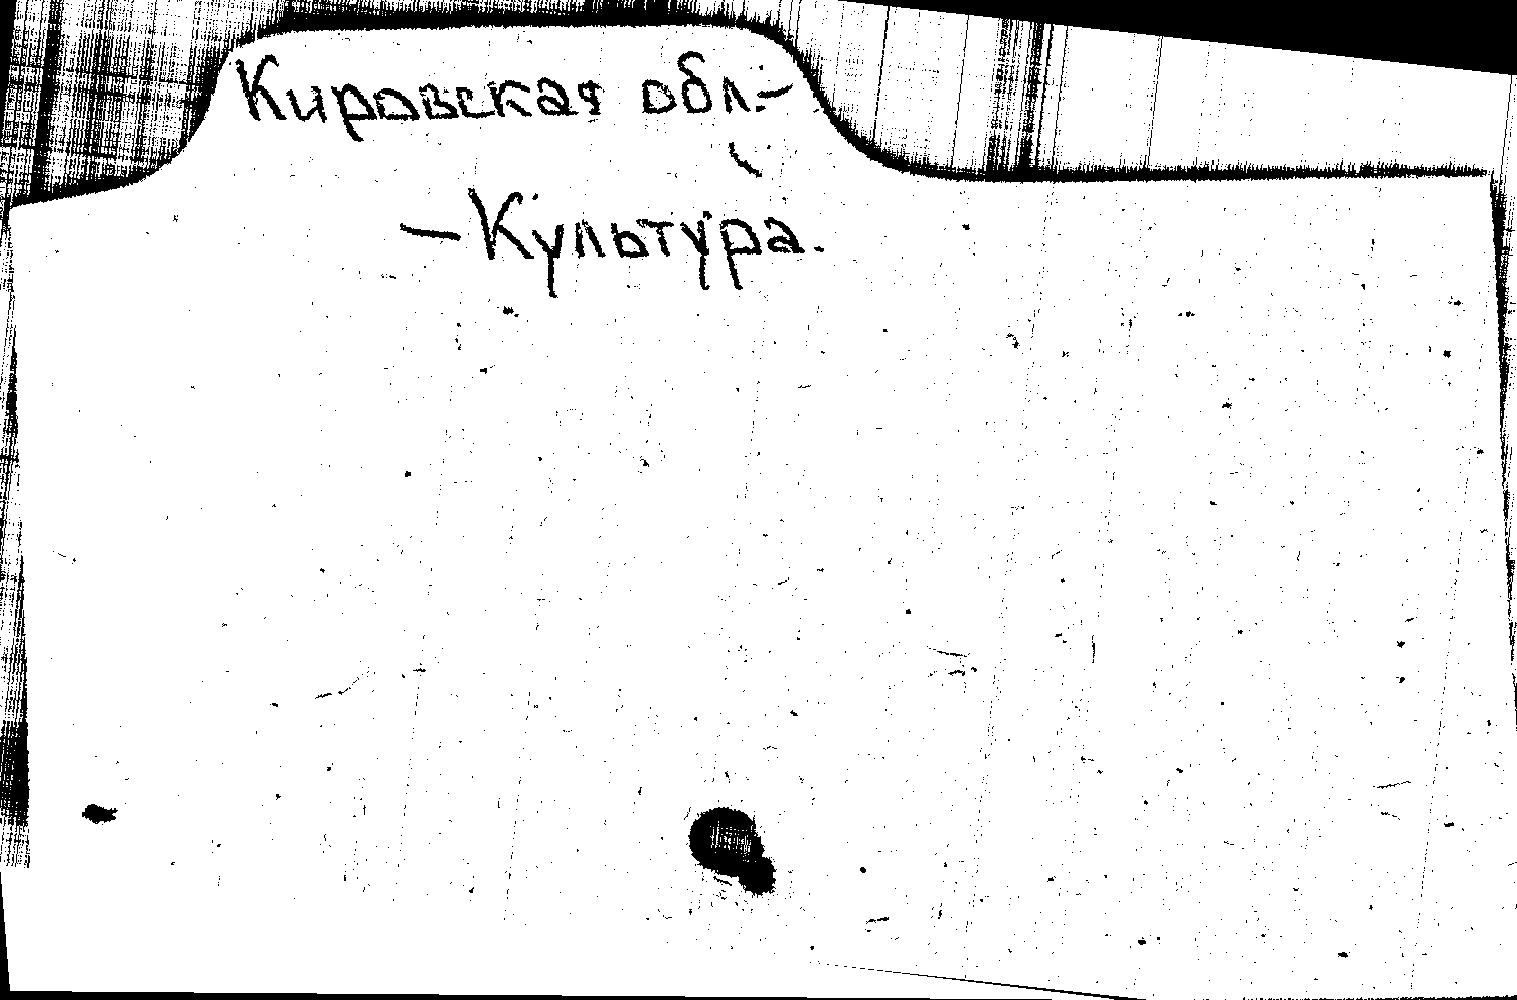 Кировская обл.–
– Культура.